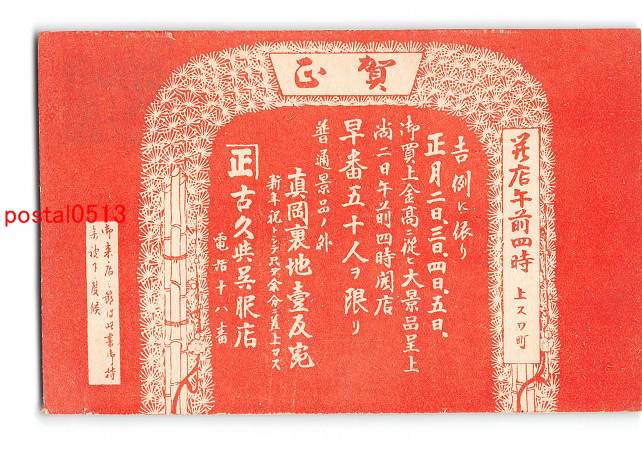 賀正
開店午前四時
上スワ町
吉例に依り
正月二日、三日、四日、五日、
御買上金高ニ従ヒ大景品呈上
尚二日午前四時開店
早番五十人ヲ限リ
普通景品ノ外
真岡裏地壹反宛
新年祝トシテ
余分ニ差上マス
正 古久屋呉服店
電話十八番
御来店之節は此書御持
下度候
postal0513